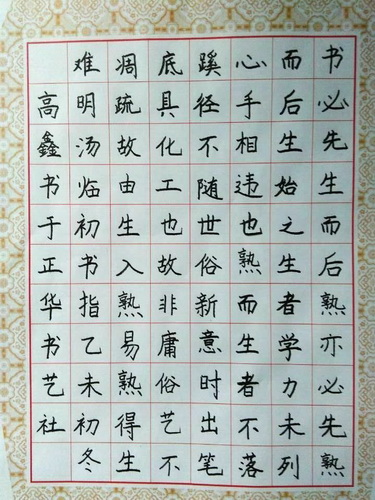 书必先生而后熟亦必先熟
而后生始之生者学力未列
心手相违也熟而生者不落
蹊径不随世俗新意时出笔
底具化工也故非庸俗艺不
凋疏故由生入熟易熟得生
难明汤临初书指乙未初冬
高鑫书于正华书艺社